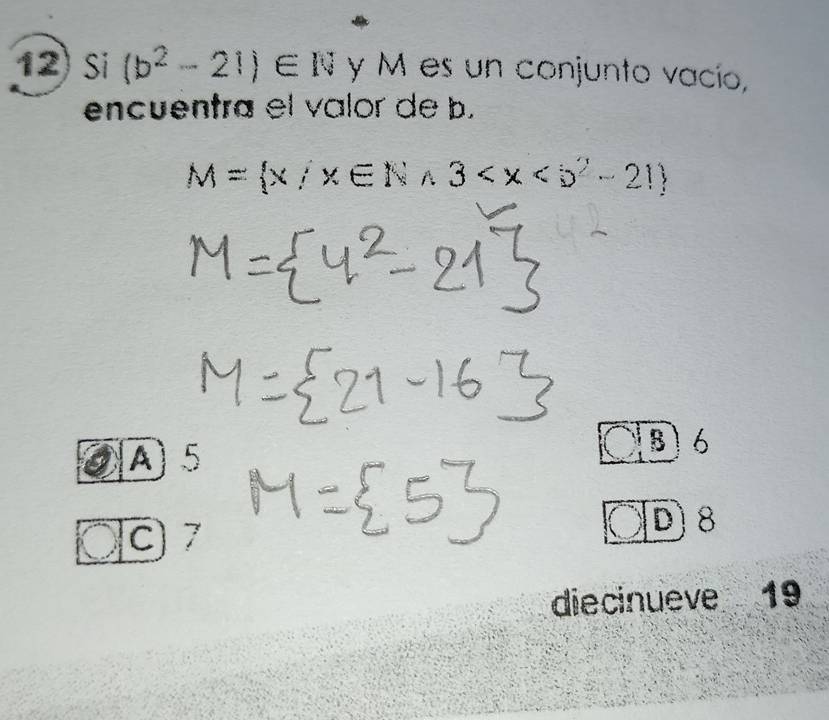 12) Si (b² - 21) ∈ N y M es un conjunto vacío,
encuentra el valor de b.
M = {x / x ∈ N ∧ 3 < x < b² - 21}
M = {4² - 21} 4²
M = {21 - 16}
A) 5
B) 6
M = {5}
C) 7
D) 8
diecinueve 19